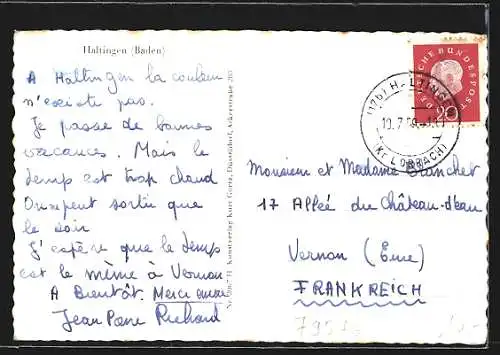 Haltingen (Baden)
A Haltingen la couleur
n'existe pas.
Je passe de bonnes
vacances. Mais le
temps est trop chaud
On ne peut sortir que
le soir
J'espère que le temps
est le même à Vernon
A Bientôt. Merci
Jean Pierre Richard
Kunstverlag Kurt Düsseldorf, Ackerstraße
DEUTSCHE BUNDESPOST
20
HALTINGEN
10.7.59
(Kr LÖRRACH)
Monsieur et Madame Blanchet
17 Allée du Château-d'eau
Vernon (Eure)
FRANKREICH